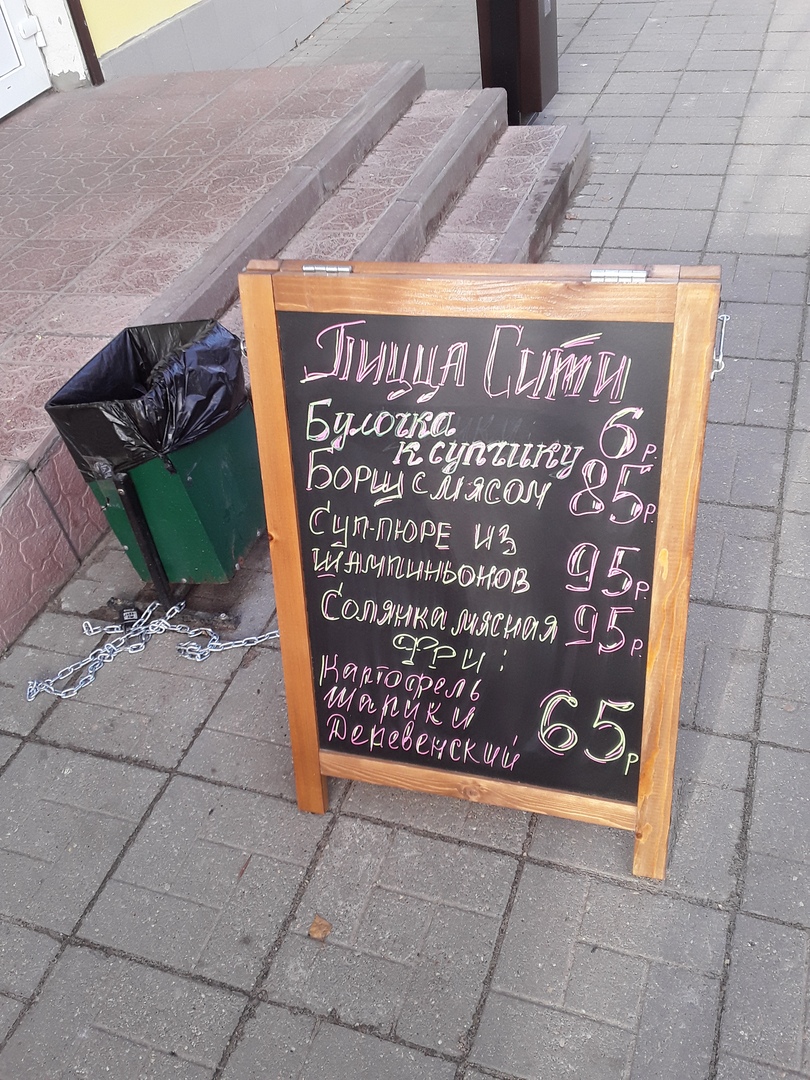 Пицца Сити
Булочка
к супчику 6р.
Борщ с мясом 85р.
Суп-пюре из
Шампиньонов 95р.
Солянка мясная 95р.
Фри:
Картофель
Шарики
Деревенский 65р